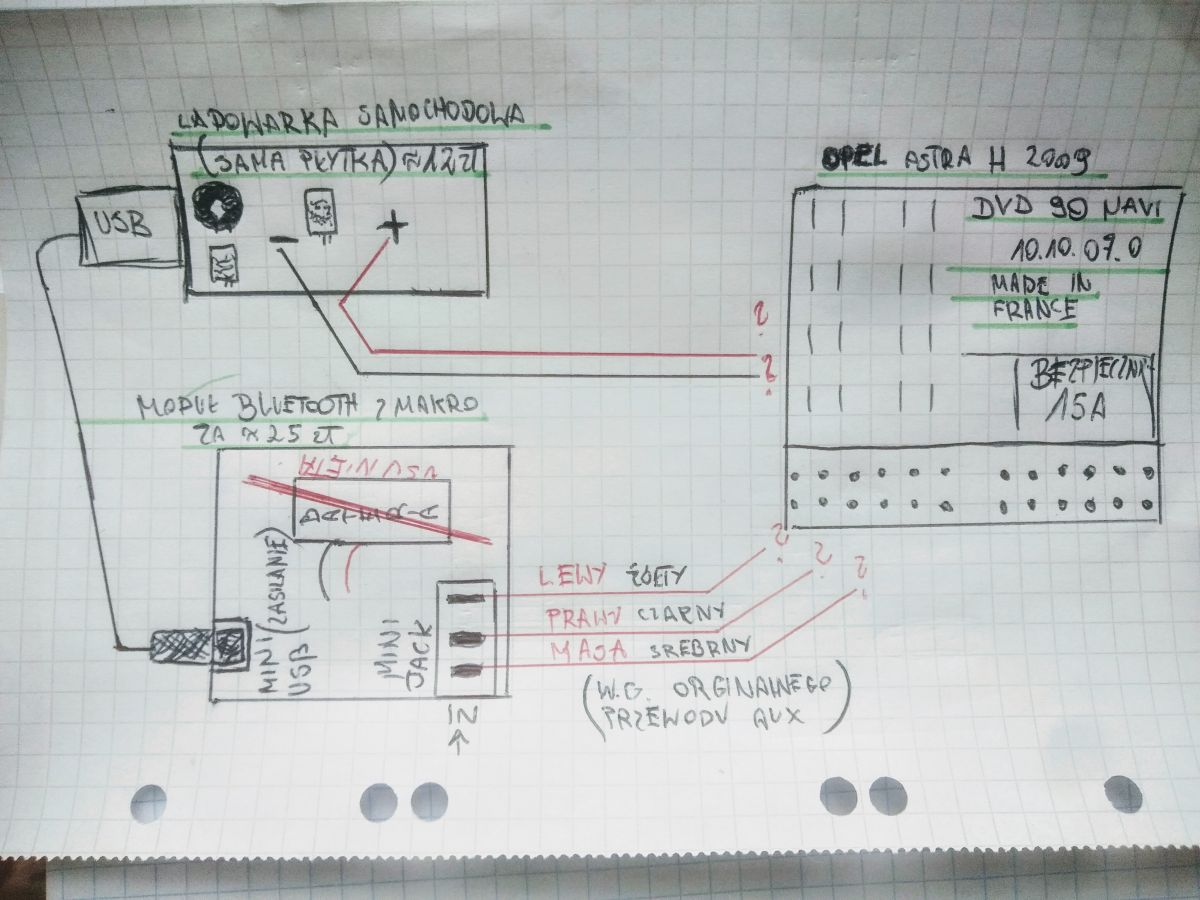 ŁADOWARKA SAMOCHODOWA
(SAMA PŁYTKA) ≈ 12 zł
USB
- +
OPEL ASTRA H 2009
DVD 90 NAVI
10.10.07.0
MADE IN
FRANCE
BEZPIECZNIK
15A
?
?
MODUŁ BLUETOOTH z MAKRO
ZA ≈ 25 zł
BATERIA
MINI USB (ZASILANIE)
MINI JACK
IN
LEWY ŻÓŁTY
PRAWY CZARNY
MASA SREBRNY
(W.G. ORGINALNEGO
PRZEWODU AUX)
? ? ?